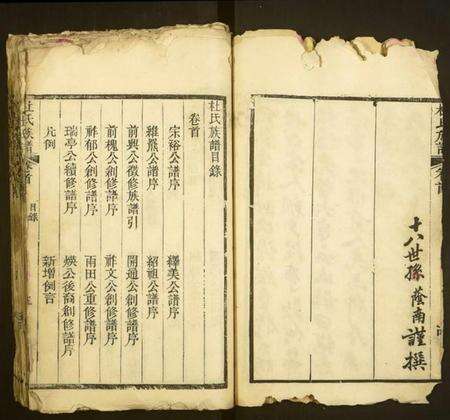 十八世孫 蔭南謹撰
杜氏族譜目錄
卷首
宗裕公譜序 繹美公譜序
維熊公譜序 紹祖公譜序
前興公徵修族譜引 開通公創修譜序
前槐公創修譜序 祚文公創修譜序
祚郁公創修譜序 雨田公重修譜序
瑞亭公續修譜序 煐公後裔創修譜序
凡例 新增例言
杜氏族譜 卷首 目錄